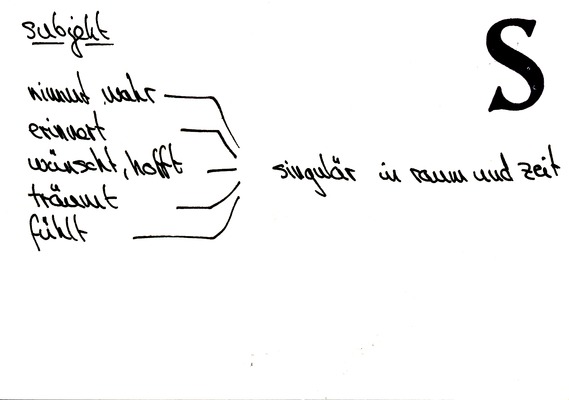 subjekt
S
nimmt wahr
erinnert
wünscht, hofft
singulär in raum und zeit
träumt
fühlt